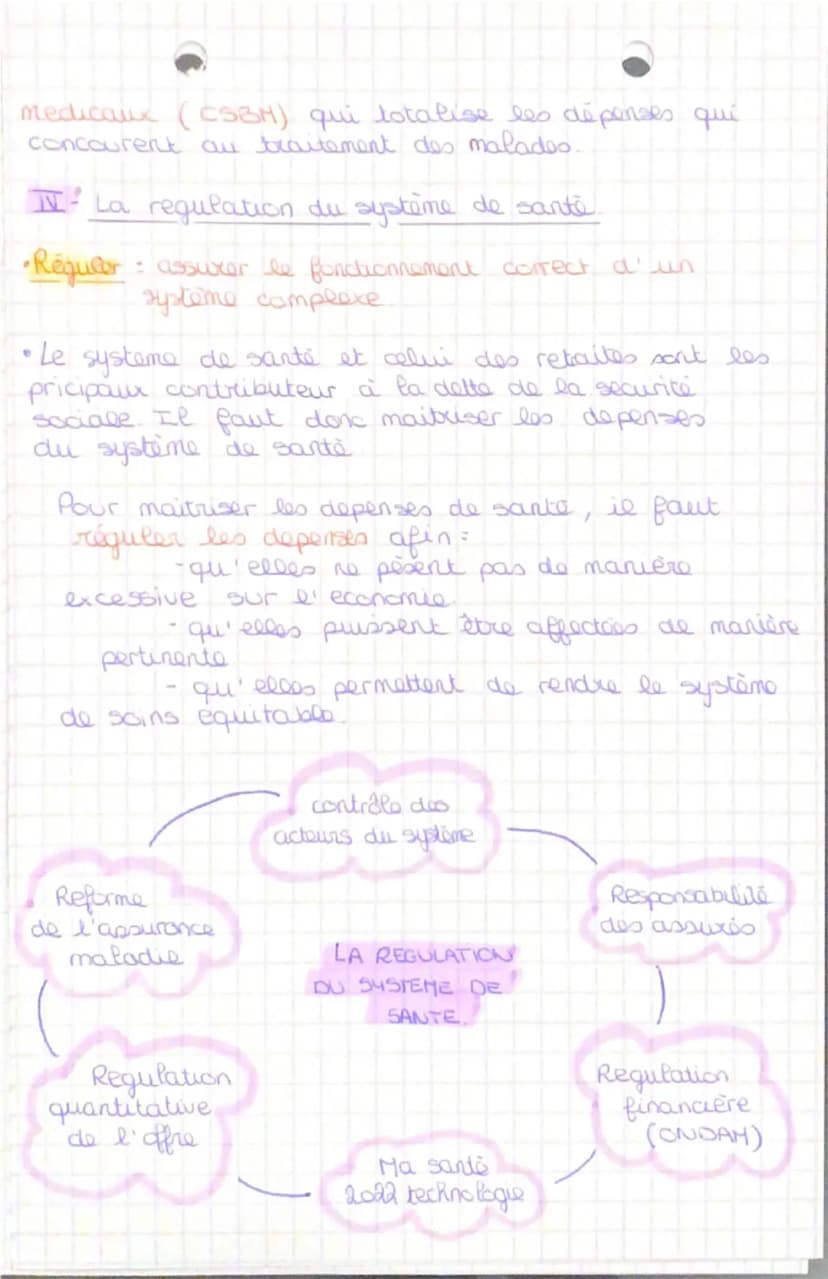 medicaux (CSBM) qui totalise les dépenses qui
concourent au traitement des malades.
IV- La regulation du système de santé
•Réguler : assurer le fonctionnement correct d'un
système complexe
• Le systeme de santé et celui des retraites sont les
pricipaux contributeur à la dette de la securité
sociale. Il faut donc maitriser les depenses
du système de santé
Pour maitriser les depenses de santé, il faut
réguler les depenses afin :
-qu'elles ne pèsent pas de manière
excessive sur l'economie.
- qu'elles puissent être affectées de manière
pertinente
- qu'elles permettent de rendre le système
de soins équitable.
contrôle des
acteurs du système
Responsabilité
des assurés
Regulation
financière
(ONDAM)
Ma santé
2022 technologie
Regulation
quantitative
de l'offre
Reforme
de l'assurance
maladie
LA REGULATION
DU SYSTEME DE
SANTE.